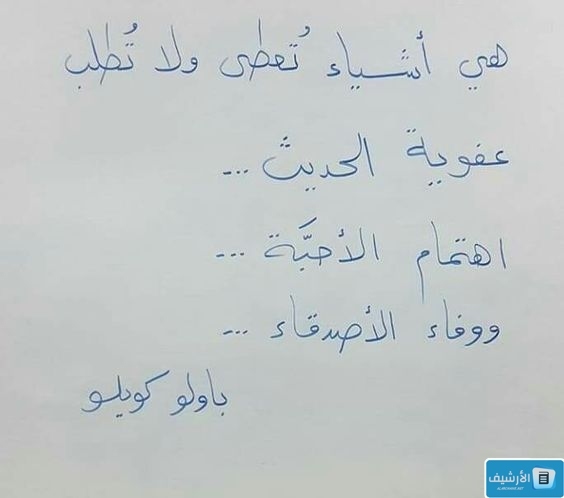 هي أشياء تُعطى ولا تُطلب
عفوية الحديث ...
اهتمام الأحبَّة ...
ووفاء الأصدقاء ...
باولو كويلو
الأرشيف